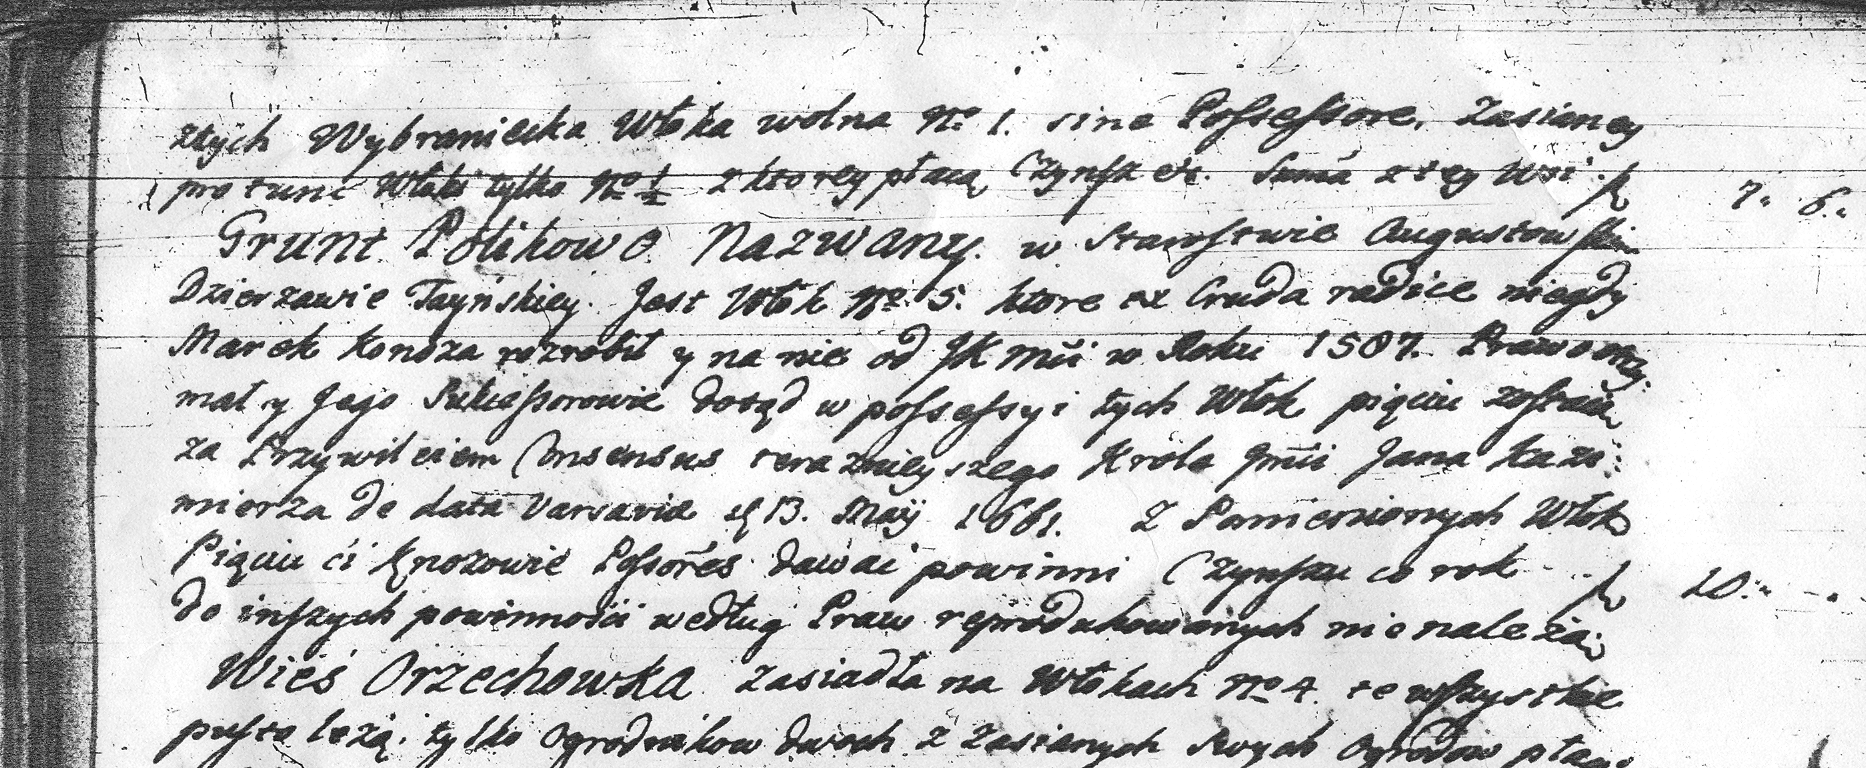 z tych Wybraniecka Włoka wolna No 1. sine Possessore. Zasianey
pro tunc Włoki tylko No ½ z ktorey płacą Czynsz etc. Suma z tey Wsi f 7" 6"
Grunt Polikowo Nazwany. w Starostwie Augustowskim
Dzierzawie Tayńskiey. Jest Włok No 5. ktore ex Cruda radice niegdy
Marek Konoza rozrobił y na nie od JK Mći w Roku 1587. Prawo otrzy
mał y Jego Sukcessorowie dotąd w possessyi tych Włok piąciu zostaią
za Przywileiem Consensus teraznieyszego Króla Jmći Jana Kazi:
mierza de data Varsaviæ 13. Maÿ 1661. Z Pomienionych Włok
Piąciu ći Possores dawać powinni Czynszu co rok f 20" -"
do inszych powinnośći według Praw reprodukowanych nie należą.
Wieś Orzechowka zasiadła na Włokach No 4. te wszystkie
pusto leżą. tylko Ogrodnikow dwoch z zasianych swych Ogrodow płacą